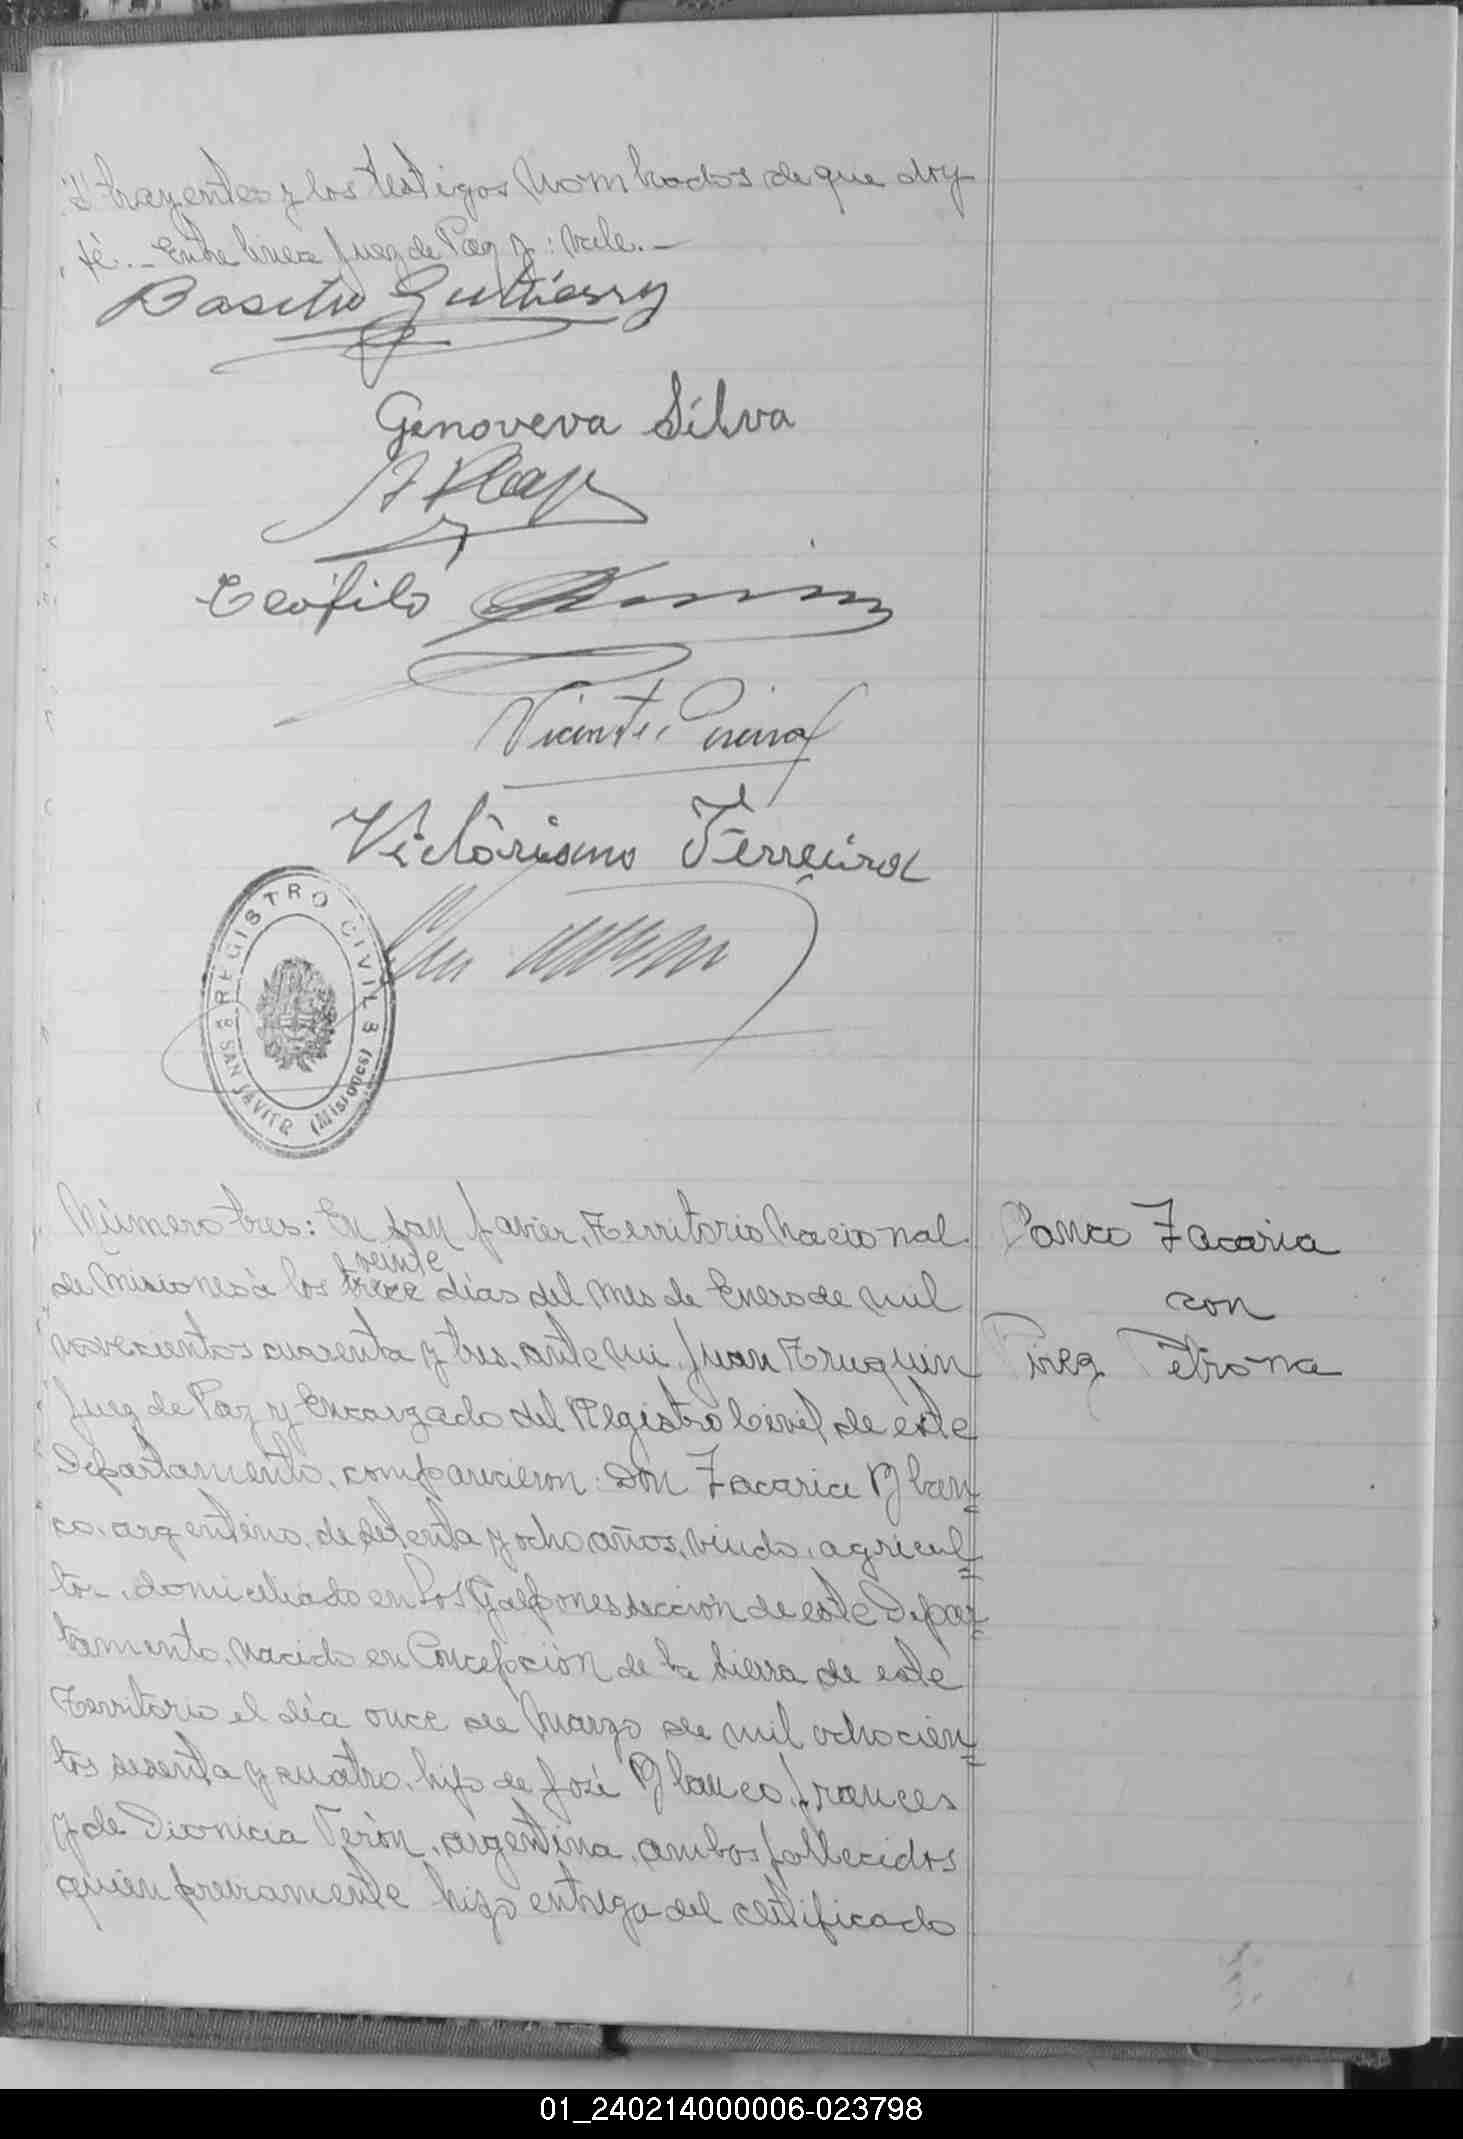 trayentes y los testigos nombrados de que doy
fé.- Entre linea Juez de Paz y: Vale.-
Basilio Gutierrez
Genoveva Silva
Teófilo
Vicente
Victoriano Ferreira
REGISTRO CIVIL
SAN JAVIER (Misiones)
Número tres: En San Javier, Territorio Nacional
veinte
de Misiones á los trece días del mes de Enero de mil
novecientos cuarenta y tres, ante mi, Juan Truquin
Juez de Paz y Encargado del Registro Civil de este
Departamento, comparecieron: Don Zacaria Blan=
co, argentino, de setenta y ocho años, viudo, agricul=
tor, domiciliado en Los Galpones sección de este Depar=
tamento, nacido en Concepción de la Sierra de este
Territorio el día once de Marzo de mil ochocien=
tos sesenta y cuatro, hijo de José Blanco, frances
y de Dionicia Verón, argentina, ambos fallecidos
quien previamente hizo entrega del certificado
Zacaria
con
Petrona
01_240214000006-023798